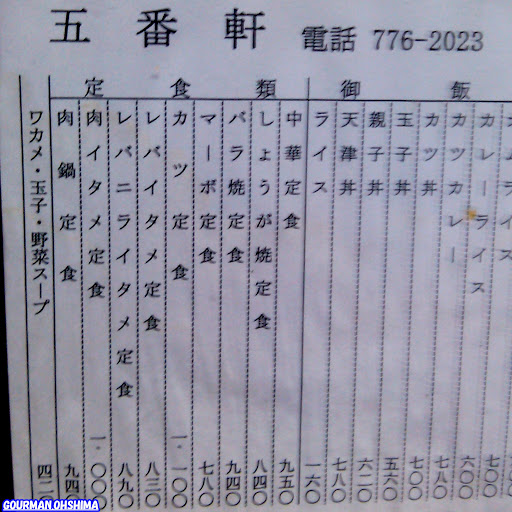 五番軒 電話 776-2023
御飯
定食類
オムライス 七〇〇
カレーライス 六〇〇
カツカレー 七八〇
カツ丼 七〇〇
玉子丼 五六〇
親子丼 六二〇
天津丼 七八〇
ライス 一六〇
中華定食 九五〇
しょうが焼定食 八四〇
バラ焼定食 九四〇
マーボ定食 七八〇
カツ定食 一、一〇〇
レバイタメ定食 八三〇
レバニライタメ定食 八九〇
肉イタメ定食 一、〇〇〇
肉鍋定食 九四〇
ワカメ・玉子・野菜スープ 四二〇
GOURMAN OHSHIMA